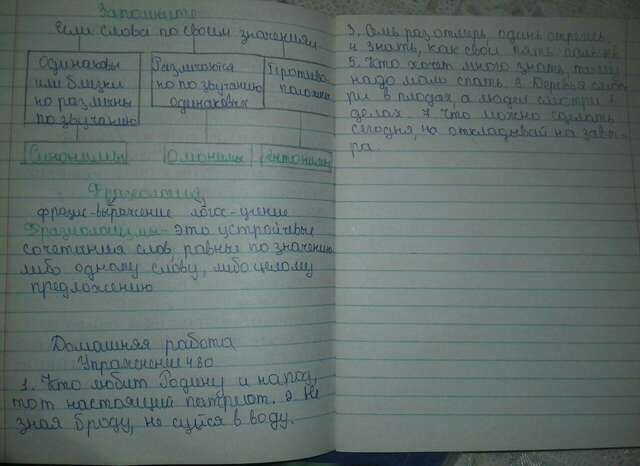 Запомните
Если слова по своим значениям
Одинаковы
или близки
но различны
по звучанию
Различаются
но по звучанию
одинаковых
Противо-
положны
Синонимы
Омонимы
Антонимы
Фразеология
фразис-выражение логос-учение
Фразиологизмы- это устойчевые
сочетания слов, равные по значению
либо одному слову, либо целому
предложению
Домашняя работа
Упражнение 480
1. Кто любит Родину и народ,
тот настоящий патриот. 2. Не
зная броду, не суйся в воду.
3. Семь раз отмерь, один отрежь.
и знать, как свои пять пальцев
5. Кто хочет много знать, тому
надо мало спать. 6 Деревья смот
ри в плодах, а людей смотри в
делах. 7 Что можно сделать
сегодня, на откладывай на завт
ра.